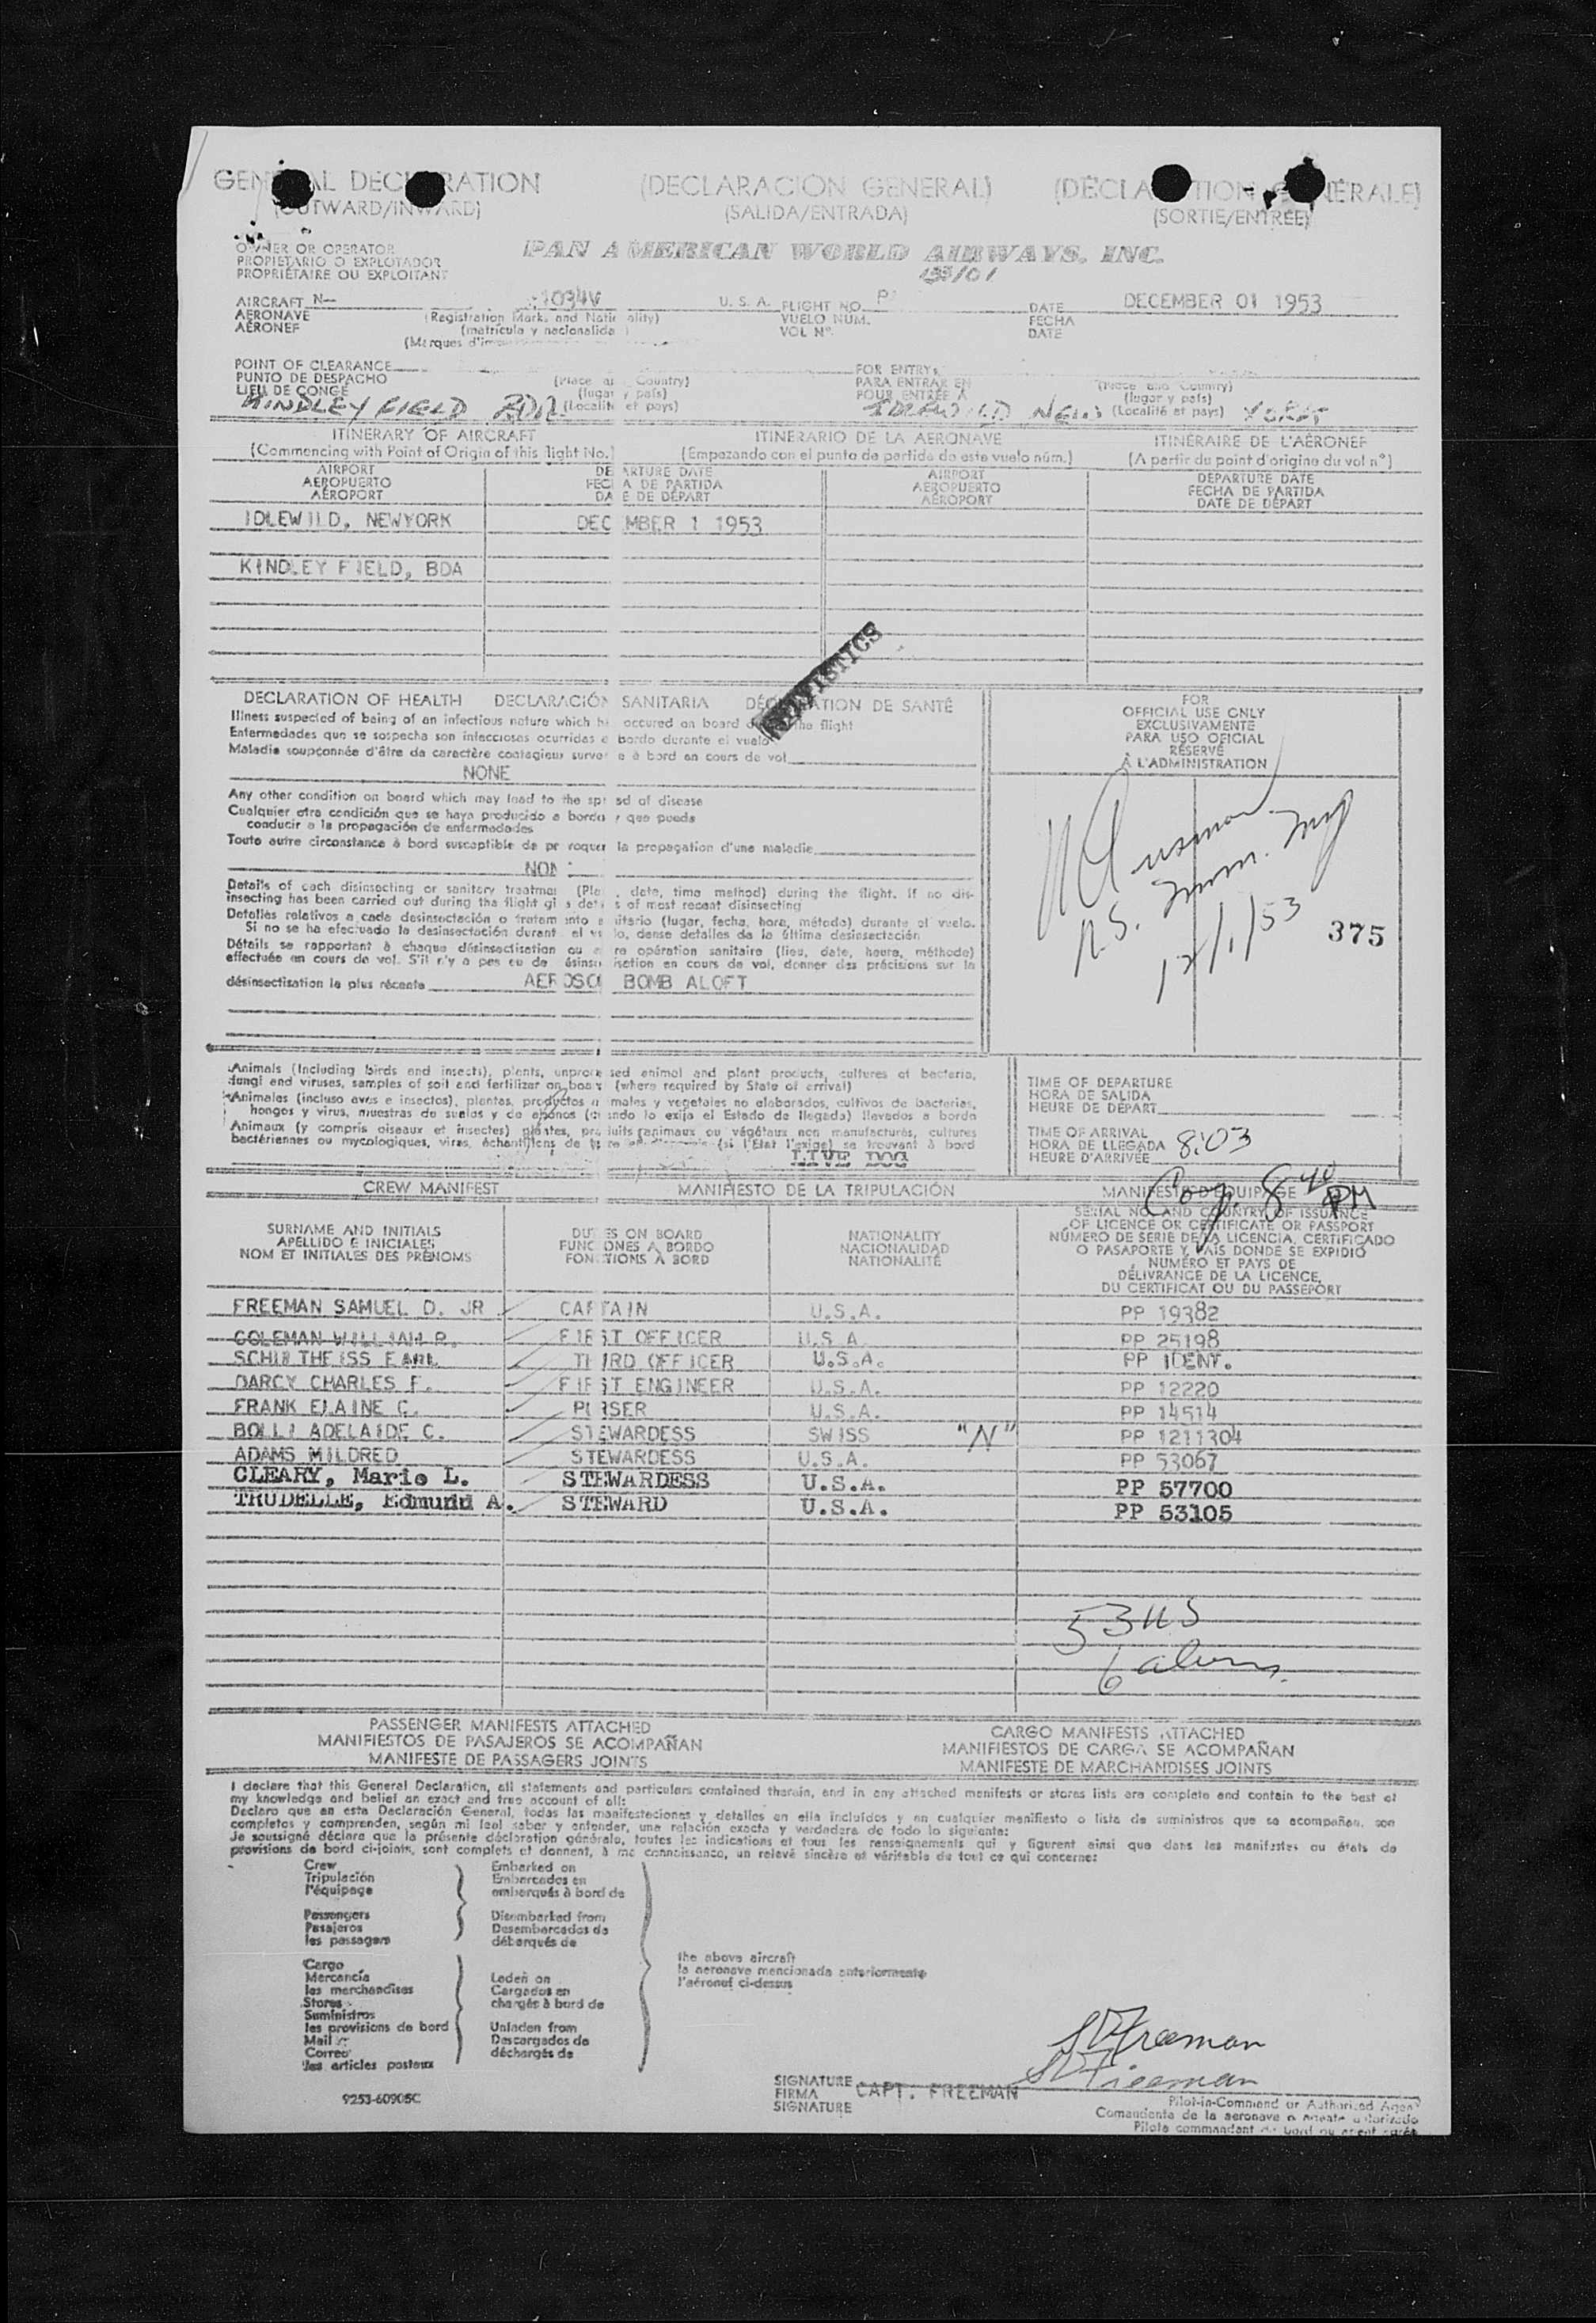 GENERAL DECLARATION (DECLARACIÓN GENERAL) (DÉCLARATION GÉNÉRALE)
(OUTWARD/INWARD) (SALIDA/ENTRADA) (SORTIE/ENTRÉE)
OWNER OR OPERATOR
PROPIETARIO O EXPLOTADOR
PROPRIÉTAIRE OU EXPLOITANT
PAN AMERICAN WORLD AIRWAYS, INC.
133/01
AIRCRAFT N-- 1034V U. S. A. FLIGHT NO. P DATE DECEMBER 01 1953
AERONAVE (Registration Marks and Nationality) VUELO NÚM. FECHA
AÉRONEF (matrícula y nacionalidad) VOL Nº. DATE
(Marques
POINT OF CLEARANCE FOR ENTRY
PUNTO DE DESPACHO (Place and Country) PARA ENTRAR EN (Place and Country)
LIEU DE CONGÉ (lugar y país) POUR ENTRÉE À (lugar y país)
KINDLEY FIELD BDA (Localité et pays) IDLEWILD NEW (Localité et pays) YORK
ITINERARY OF AIRCRAFT ITINERARIO DE LA AERONAVE ITINÉRAIRE DE L'AÉRONEF
(Commencing with Point of Origin of this flight No.) (Empezando con el punto de partida de este vuelo núm.) (A partir du point d'origine du vol nº)
AIRPORT DEPARTURE DATE AIRPORT DEPARTURE DATE
AEROPUERTO FECHA DE PARTIDA AEROPUERTO FECHA DE PARTIDA
AÉROPORT DATE DE DÉPART AÉROPORT DATE DE DÉPART
IDLEWILD, NEWYORK DEC MBER 1 1953
KINDLEY FIELD, BDA
STATISTICS
DECLARATION OF HEALTH DECLARACIÓN SANITARIA DÉCLARATION DE SANTÉ
Illness suspected of being of an infectious nature which has occured on board during the flight
Enfermedades que se sospecha son infecciosas ocurridas a bordo durante el vuelo
Maladie soupçonnée d'être de caractère contagieux survenue à bord en cours de vol
NONE
Any other condition on board which may lead to the spread of disease
Cualquier otra condición que se haya producido a bordo y que pueda
conducir a la propagación de enfermedades
Toute autre circonstance à bord susceptible de provoquer la propagation d'une maladie
NONE
Details of each disinsecting or sanitary treatment (Place, date, time method) during the flight. If no dis-
insecting has been carried out during the flight give details of most recent disinsecting
Detalles relativos a cada desinsectación o tratamiento sanitario (lugar, fecha, hora, método) durante el vuelo.
Si no se ha efectuado la desinsectación durante el vuelo, dense detalles de la última desinsectación
Détails se rapportant à chaque désinsectisation ou autre opération sanitaire (lieu, date, heure, méthode)
effectuée en cours de vol. S'il n'y a pas eu de désinsectisation en cours de vol, donner des précisions sur la
désinsectisation la plus récente AEROSOL BOMB ALOFT
FOR
OFFICIAL USE ONLY
EXCLUSIVAMENTE
PARA USO OFICIAL
RÉSERVÉ
À L'ADMINISTRATION
U.S. Imm. Insp
12/1/53
375
Animals (Including birds and insects), plants, unprocessed animal and plant products, cultures of bacteria,
fungi and viruses, samples of soil and fertilizer on board (where required by State of arrival)
Animales (incluso aves e insectos), plantas, productos animales y vegetales no elaborados, cultivos de bacterias,
hongos y virus, muestras de suelos y de abonos (cuando lo exija el Estado de llegada) llevados a bordo
Animaux (y compris oiseaux et insectes) plantes, produits (animaux ou végétaux non manufacturés, cultures
bactériennes ou mycologiques, virus, échantillons de terre (si l'État l'exige) se trouvant à bord
LIVE DOG
TIME OF DEPARTURE
HORA DE SALIDA
HEURE DE DÉPART
TIME OF ARRIVAL
HORA DE LLEGADA 8:03
HEURE D'ARRIVÉE
8 40 PM
CREW MANIFEST MANIFIESTO DE LA TRIPULACIÓN MANIFESTE D'EQUIPAGE
SURNAME AND INITIALS DUTIES ON BOARD NATIONALITY
APELLIDO E INICIALES FUNCIONES A BORDO NACIONALIDAD
NOM ET INITIALES DES PRÉNOMS FONCTIONS À BORD NATIONALITÉ
SERIAL NO. AND COUNTRY OF ISSUANCE
OF LICENCE OR CERTIFICATE OR PASSPORT
NÚMERO DE SERIE DE LA LICENCIA, CERTIFICADO
O PASAPORTE Y PAÍS DONDE SE EXPIDIÓ
NUMÉRO ET PAYS DE
DÉLIVRANCE DE LA LICENCE,
DU CERTIFICAT OU DU PASSEPORT
FREEMAN SAMUEL D. JR CAPTAIN U.S.A. PP 19382
COLEMAN WILLIAM R. FIRST OFFICER U.S.A. PP 25198
SCHULTHEISS EARL THIRD OFFICER U.S.A. PP IDENT.
DARCY CHARLES F. FIRST ENGINEER U.S.A. PP 12220
FRANK ELAINE C. PURSER U.S.A. PP 14514
BOLLI ADELAIDE C. STEWARDESS SWISS "N" PP 1211304
ADAMS MILDRED STEWARDESS U.S.A. PP 53067
CLEARY, Marie L. STEWARDESS U.S.A. PP 57700
TRUDELLE, Edmund A. STEWARD U.S.A. PP 53105
53 US
6 aliens
PASSENGER MANIFESTS ATTACHED CARGO MANIFESTS ATTACHED
MANIFIESTOS DE PASAJEROS SE ACOMPAÑAN MANIFIESTOS DE CARGA SE ACOMPAÑAN
MANIFESTE DE PASSAGERS JOINTS MANIFESTE DE MARCHANDISES JOINTS
I declare that this General Declaration, all statements and particulars contained therein, and in any attached manifests or stores lists are complete and contain to the best of
my knowledge and belief an exact and true account of all:
Declaro que en esta Declaración General, todas las manifestaciones y detalles en ella incluídos y en cualquier manifiesto o lista de suministros que se acompañan, son
completos y comprenden, según mi leal saber y entender, una relación exacta y verdadera de todo lo siguiente:
Je soussigné déclare que la présente déclaration générale, toutes les indications et tous les renseignements qui y figurent ainsi que dans les manifestes ou états de
provisions de bord ci-joints, sont complets et donnent, à ma connaissance, un relevé sincère et véritable de tout ce qui concerne:
Crew Embarked on
Tripulación Embarcados en
l'équipage embarqués à bord de
Passengers Disembarked from
Pasajeros Desembarcados de
les passagers débarqués de
the above aircraft
la aeronave mencionada anteriormente
l'aéronef ci-dessus
Cargo
Mercancía Laden on
les marchandises Cargados en
Stores chargés à bord de
Suministros
les provisions de bord Unladen from
Mail Descargados de
Correo déchargés de
les articles postaux
SD Freeman
SD Freeman
SIGNATURE CAPT. FREEMAN
FIRMA
SIGNATURE
9253-60905C
Pilot-in-Command or Authorized Agent
Comandante de la aeronave o agente autorizado
Pilote commandant de bord ou agent agréé